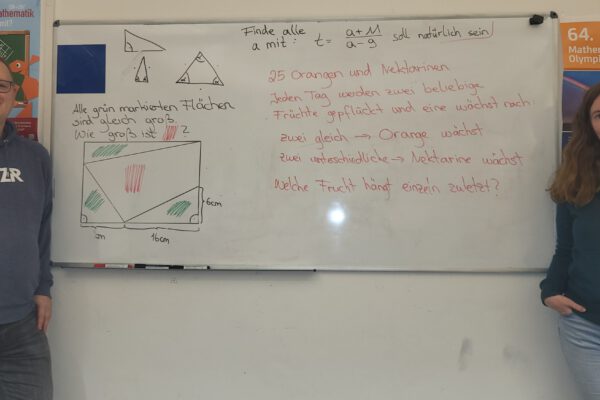 Finde alle
a mit: t = (a+11)/(a-9) soll natürlich sein
25 Orangen und Nektarinen
Jeden Tag werden zwei beliebige
Früchte gepflückt und eine wächst nach:
zwei gleich → Orange wächst
zwei unterschiedliche → Nektarine wächst
Welche Frucht hängt einzeln zuletzt?
Alle grün markierten Flächen
sind gleich groß.
Wie groß ist ?
6cm
16cm
64.
Mathe
Olymp